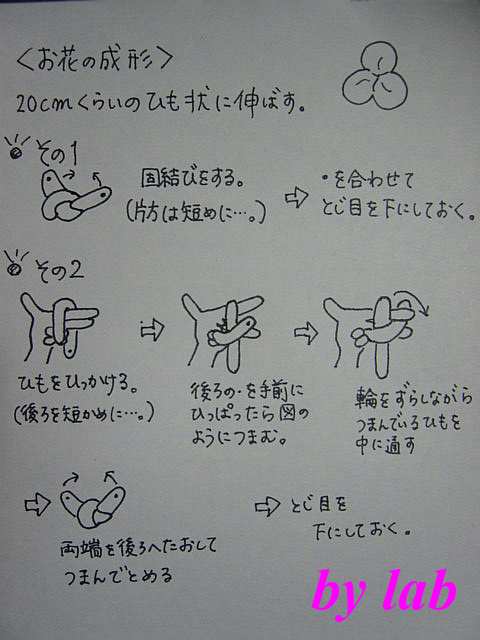 〈お花の成形〉
20cmくらいのひも状に伸ばす。
その1
固結びをする。
(片方は短めに…。)
・を合わせて
とじ目を下にしておく。
その2
ひもをひっかける。
(後ろを短かめに…。)
後ろの・を手前に
ひっぱったら図の
ようにつまむ。
輪をずらしながら
つまんでいるひもを
中に通す
両端を後ろへたおして
つまんでとめる
とじ目を
下にしておく。
by lab